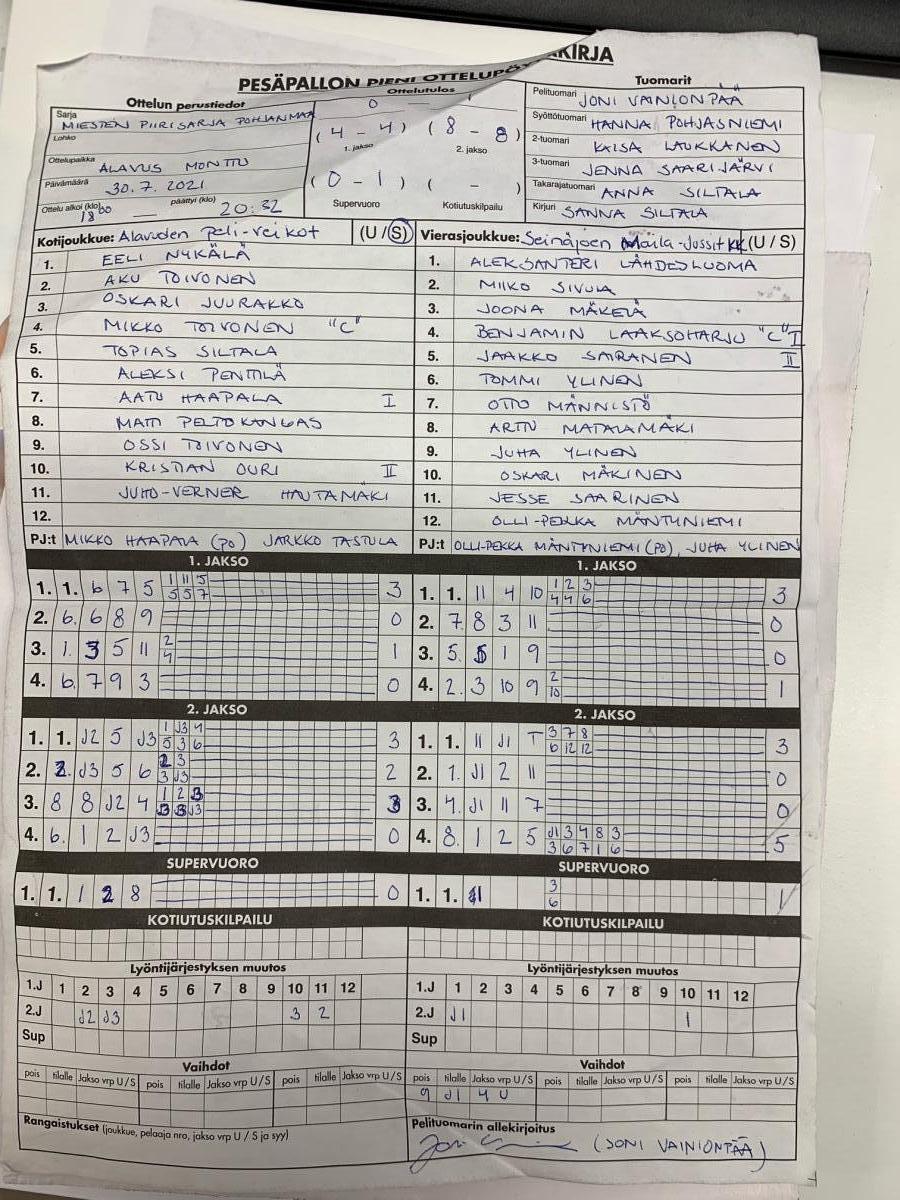 PESÄPALLON PIENI OTTELUPÖ KIRJA
Ottelun perustiedot
Sarja MIESTEN PIIRISARJA POHJANMAA
Lohko
Ottelupaikka ALAVUS MONTTU
Päivämäärä 30.7.2021
Ottelu alkoi (klo) 1800 — päättyi (klo) 20:32
Ottelutulos
0 — 1
(4 - 4) (8 - 8)
1. jakso 2. jakso
(0 - 1) ( - )
Supervuoro Kotiutuskilpailu
Tuomarit
Pelituomari JONI VAINIONPÄÄ
Syöttötuomari HANNA POHJASNIEMI
2-tuomari KAISA LAUKKANEN
3-tuomari JENNA SAARIJÄRVI
Takarajatuomari ANNA SILTALA
Kirjuri SANNA SILTALA
Kotijoukkue: Alavuden Peli-Veikot (U / S)
1. EELI NYKÄLÄ
2. AKU TOIVONEN
3. OSKARI JUURAKKO
4. MIKKO TOIVONEN "C"
5. TOPIAS SILTALA
6. ALEKSI PENTTILÄ
7. AATU HAAPALA I
8. MATTI PELTOKANGAS
9. OSSI TOIVONEN
10. KRISTIAN OURI II
11. JUHO-VERNER HAUTAMÄKI
12.
PJ:t MIKKO HAAPALA (PO) JARKKO TASTULA
Vierasjoukkue: Seinäjoen Maila-Jussit KK (U / S)
1. ALEKSANTERI LÄHDESLUOMA
2. MIIKO SIVULA
3. JOONA MÄKELÄ
4. BENJAMIN LAAKSOHARJU "C" I
5. JAAKKO SAIRANEN II
6. TOMMI YLINEN
7. OTTO MÄNNISTÖ
8. ARTTU MATALAMÄKI
9. JUHA YLINEN
10. OSKARI MÄKINEN
11. JESSE SAARINEN
12. OLLI-PEKKA MÄNTYNIEMI
PJ:t OLLI-PEKKA MÄNTYNIEMI (PO), JUHA YLINEN
1. JAKSO
1. 1. 6 7 5 1 11 5 3
5 5 7
2. 6. 6 8 9 0
3. 1. 3 5 11 2 1
4
4. 6. 7 9 3 0
2. JAKSO
1. 1. J2 5 J3 1 J3 4 3
5 3 6
2. 2. J3 5 6 2 3 2
3 J3
3. 8 8 J2 4 1 2 3 3
J3 3 J3
4. 6. 1 2 J3 0
SUPERVUORO
1. 1. 1 2 8 0
KOTIUTUSKILPAILU
Lyöntijärjestyksen muutos
1.J 1 2 3 4 5 6 7 8 9 10 11 12
2.J J2 J3 3 2
Sup
Vaihdot
pois tilalle Jakso vrp U/S pois tilalle Jakso vrp U/S pois tilalle Jakso vrp U/S
Rangaistukset (joukkue, pelaaja nro, jakso vrp U / S ja syy)
1. JAKSO
1. 1. 11 4 10 1 2 3 3
4 4 6
2. 7. 8 3 11 0
3. 5. 5 1 9 0
4. 2. 3 10 9 2 1
10
2. JAKSO
1. 1. 11 J1 T 3 7 8 3
6 12 12
2. 1. J1 2 11 0
3. 4. J1 11 7 0
4. 8. 1 2 5 J1 3 4 8 3 5
3 6 7 1 6
SUPERVUORO
1. 1. J1 3 1
6
KOTIUTUSKILPAILU
Lyöntijärjestyksen muutos
1.J 1 2 3 4 5 6 7 8 9 10 11 12
2.J J1 1
Sup
Vaihdot
pois tilalle Jakso vrp U/S pois tilalle Jakso vrp U/S pois tilalle Jakso vrp U/S
9 J1 4 U
Pelituomarin allekirjoitus
(JONI VAINIONPÄÄ)